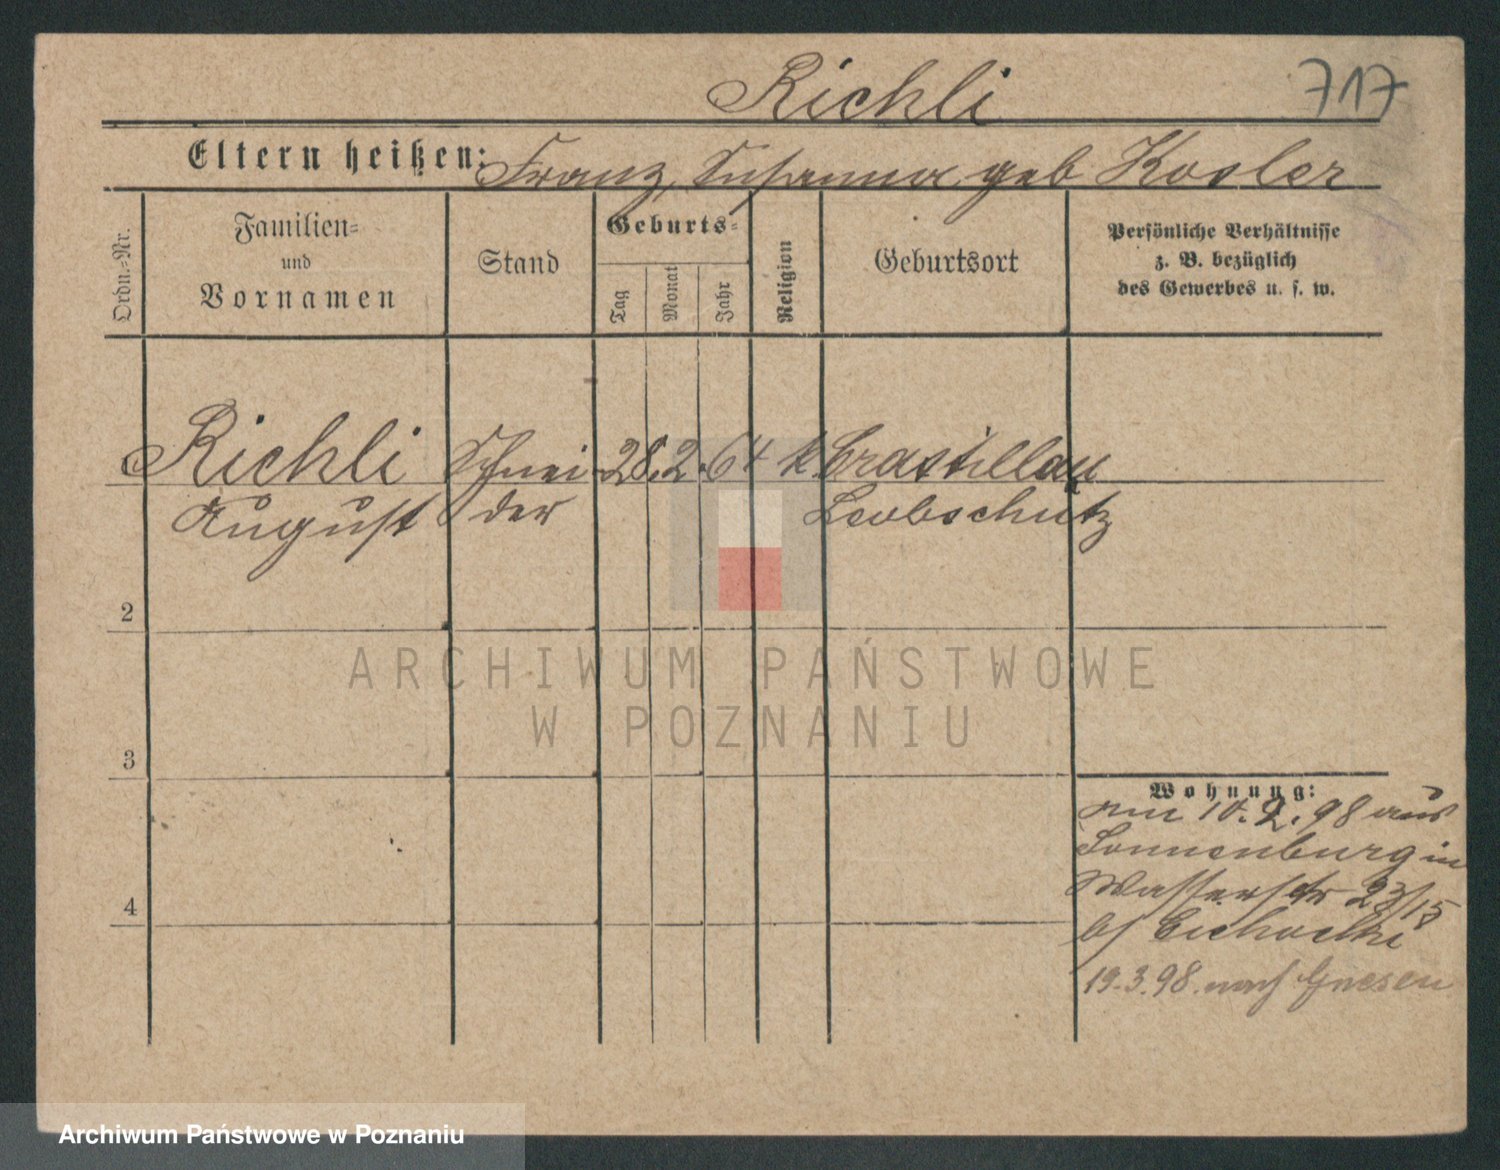 Richli
717
Eltern heißen: Franz, Susanna geb Kosler
Ordn.-Nr.
Familien-
und
Vornamen
Stand
Geburts-
Tag
Monat
Jahr
Religion
Geburtsort
Persönliche Verhältnisse
z. B. bezüglich
des Gewerbes u. s. w.
Richli Schnei 28. 2. 64 k
August der Leobschutz
2
3
4
ARCHIWUM PAŃSTWOWE
W POZNANIU
Wohnung:
am 10. 2. 98 aus
Sonnenburg in
Wasserstr 23/15
b/
19.3.98. nach Gnesen
Archiwum Państwowe w Poznaniu